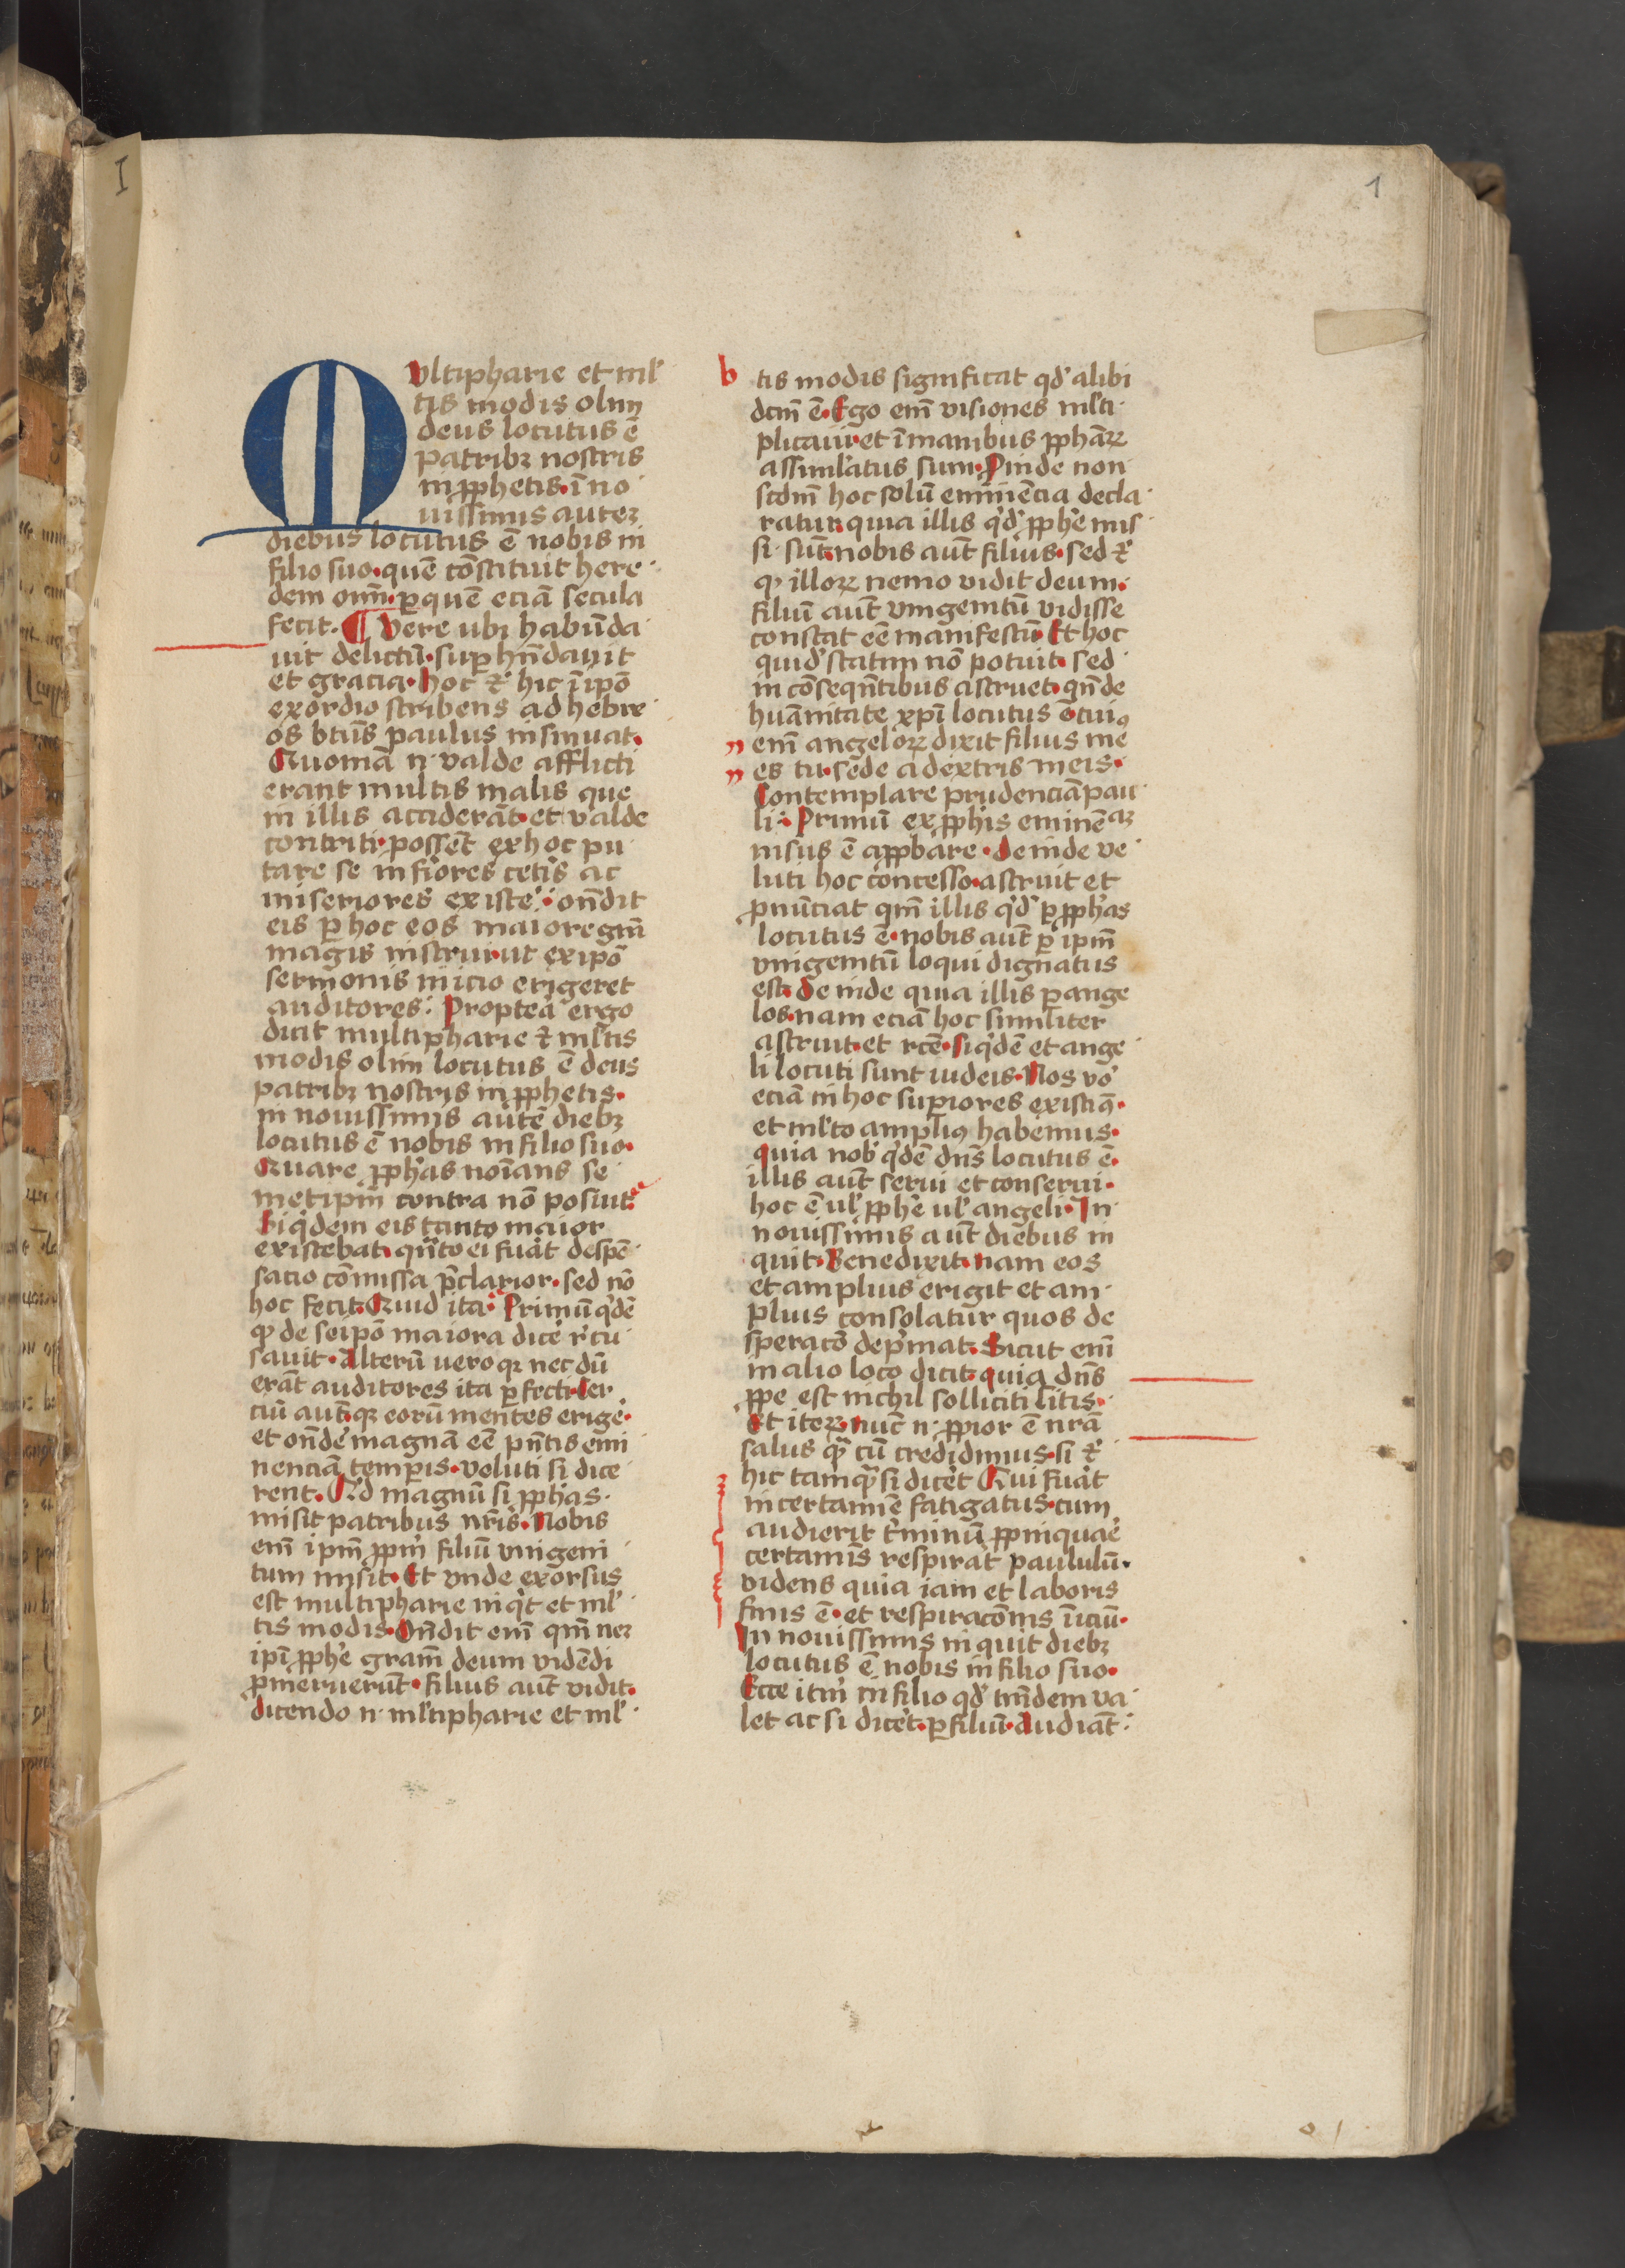 I
1
Multipharie et ml'
tis modis olim
deus locutus ē
patribꝫ nostris
in ꝓphetis· ī no
uissimis auteꝫ
diebus locutus ē nobis in
filio suo· quē cōstituit here
dem oīm̄· ꝑ quē eciā secula
fecit. ¶ Vere ubi habūda
uit delictū· suꝑ hn̄dauit
et gracia· hoc ⁊ hic ī ip̄o
exordio scribens ad hebre
os bt̄us paulus insinuat·
Quoniā n· valde afflicti
erant multis malis que
in illis acciderāt· et valde
contriti· possēt ex hoc pu
tare se inf̓iores cet̓is ac
miseriores exist̓e· on̄dit
eis ꝑ hoc eos maiore gr̄a
magis instrui· ut ex ip̄o
sermonis inicio erigeret
auditores: Proptea ergo
dicit multipharie ⁊ ml'tis
modis olim locutus ē deus
patribꝫ nostris in ꝓphetis·
in nouissimis autē diebꝫ
locutus ē nobis in filio suo·
Quare ꝓph'as noīans se
metip̄m contra nō posuit·
Siq'dem eis tanto maior
existebat· qn̄to ei fu̓at despē
sacio cōmissa p̄clarior· sed nō
hoc fecit· Quid ita· Primū q'dē
ꝙ de seip̄o maiora dic̓e r̓cu
sauit· Alterū uero qꝫ nec dū
erāt auditores ita ꝑfecti· Ter
ciū aut̄· qꝫ eorū mentes erig̓e·
et on̄d̓e magnā eē pn̄tis emi
nenciā temꝑis· veluti si dice
rent· Qd̓ magnū si ꝓph'as
misit patribus nr̄is· Nobis
em̄ ip̄m ꝓpm̄ filiū vnigeni
tum misit· Et vnde exorsus
est multipharie inq't et ml'
tis modis· On̄dit em̄ qm̄ neꝫ
ip̄i ꝓph'e gr̄am deum vidēdi
ꝓmeruerūt· filius aut̄ vidit·
dicendo n· ml'tipharie et ml'
b tis modis significat qd̓ alibi
dcm̄ ē· Ego em̄ visiones ml'ti
plicaui· et ī manibus ꝓphāꝝ
assimil'atus sum· Proinde non
scdm̄ hoc solū eminēcia decla
ratur· quia illis q'd' ꝓph'e mis
si sūt· nobis aut̄ filius· sed ⁊
ꝙ illoꝝ nemo vidit deum·
filiū aut̄ vnigenitū vidisse
constat eē manifestū· Et hoc
quid' statim nō potuit· sed
in cōseqn̄tibus astruet· qn̄ de
huānitate xp̄i locutus ē· cuiꝯ
em̄ angeloꝝ dixit filius me
es tu· sede a dextris meis·
Contemplare prudenciā pau
li· Primū ex ꝓphis eminēaꝫ
nisus ē aꝓbare· deinde ve
luti hoc concesso· astruit et
ꝓnūciat qm̄ illis q'd' ꝑ ꝓph'as
locutus ē· nobis aut̄ ꝑ ip̄m
vnigenitū loqui dignatus
est· deinde quia illis ꝑ ange
los· nam eciā hoc similiter
astruit· et rc̄e· siq'dē et ange
li locuti sunt iudeis· Nos vo̓
eciā in hoc suꝑiores existim̄·
et ml'to ampliꝯ habemus·
quia nob̓ q'dē dn̄s locutus ē·
illis aut̄ serui et conserui·
hoc ē ul' ꝓph'e ul' angeli· In
nouissimis aut̄ diebus in
quit· Benedixit· nam eos
et amplius erigit et am
plius consolatur quos de
speracō dep̓mat· Sicut em̄
in alio loco dicit· quia dn̄s
ꝓpe est nichil solliciti sitis·
Et iteꝝ· nūc n· ꝓpior ē nr̄a
salus qᷓ cū credidimus· si ⁊
hic tamqᷓ si dic̓et Qui fu̓at
in certamīe fatigatus· cum
audierit t̓minū ꝓpinquar̓e
certamīs respirat paululū·
videns quia iam et laboris
finis ē· et respiracōnis īiciū·
In nouissimis inquit diebꝫ
locutus ē nobis in filio suo·
Ecce itm̄ in filio qd̓ tm̄dem va
let ac si dic̓et· ꝑ filiū· Audiāt